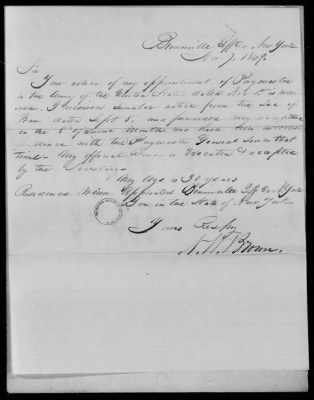 Brownville Jeff. Co. New York
Nov 7. 1849.
Sir
Your notice of my appointment of Paymaster
in the Army of the United States dated Nov 1st is
received. I received similar notice from the Sec of
War dated Sept 5. and forwarded my acceptance
on the 8th of same month and have been in
with the Paymaster General since that
time. My official bond is executed & accepted
by the Secretary.
My age is 32 years
Residence when appointed Brownville Jeff Co N York
Born in the State of New York
Yours Respy
N. W. Brown.